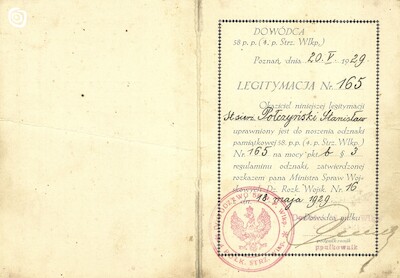 DOWÓDCA
58 p. p. (4. p. Strz. Wlkp.)
Poznań, dnia 20. V. 1929
LEGITYMACJA Nr. 165
Okaziciel niniejszej legitymacji
St. sierż. Połczyński Stanisław
uprawniony jest do noszenia odznaki
pamiątkowej 58. p. p. (4. p. Strz. Wlkp.)
Nr. 165 na mocy pkt. b § 3
regulaminu odznaki, zatwierdzonej
rozkazem pana Ministra Spraw Woj-
skowych Dz. Rozk. Wojsk. Nr. 16
18 maja 1929
Dowódca pułku
ppułkownik